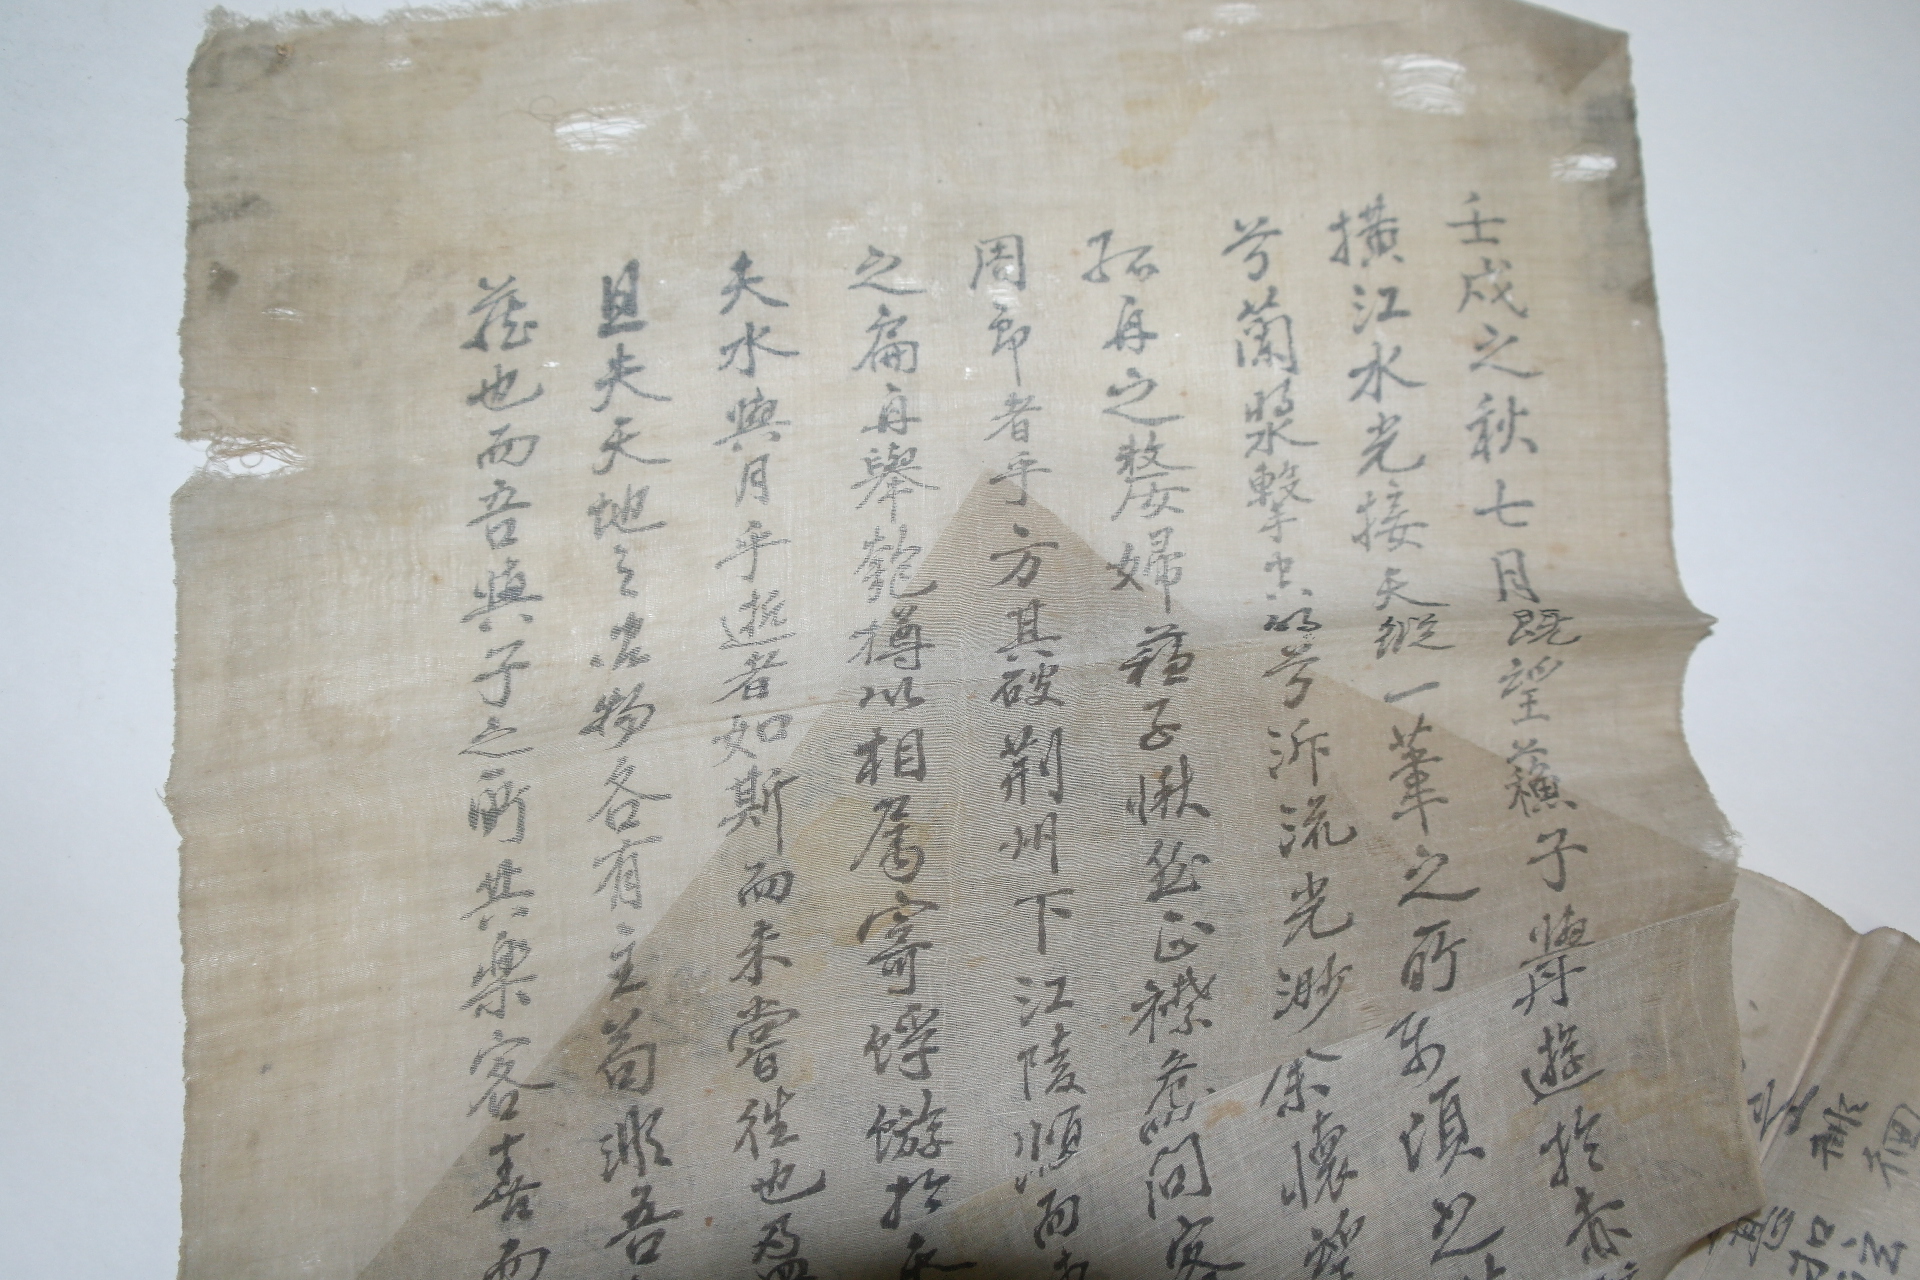 壬戌之秋七月既望蘓子與舟遊於赤
橫江水光接天縱一葦之所
兮蘭槳擊空明兮泝流光渺余懷望
孤舟之嫠婦蘓子愀然正襟危問客
周郎者乎方其破荊州下江陵順而
之扁舟舉匏樽以相屬寄蜉蝣於天
夫水與月乎逝者如斯而未嘗徃也
且夫天地之次物各有主苟非吾
蔵也而吾與子之所共樂客喜而